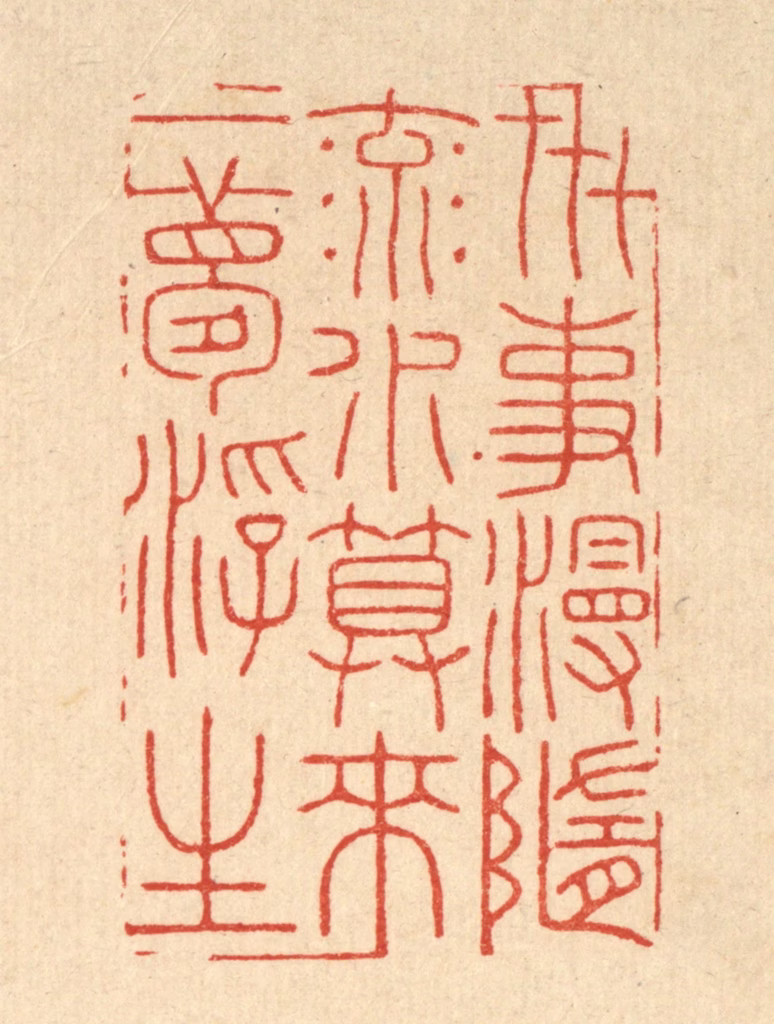 世事漫隨
流水算來
一夢浮生